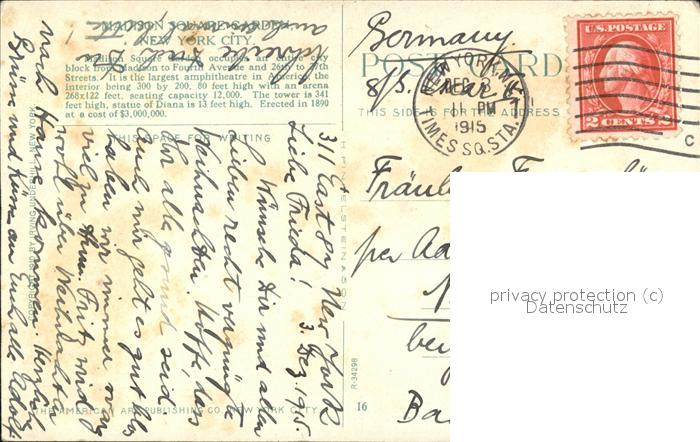 MADISON SQUARE GARDEN,
NEW YORK CITY.
Madison Square Garden occupies an entire city
block from Madison to Fourth Avenue and 26th to 27th
Streets. It is the largest amphitheatre in America, the
interior being 300 by 200, 80 feet high with an arena
268x122 feet, seating capacity 12,000. The tower is 341
feet high, statue of Diana is 13 feet high. Erected in 1890
at a cost of $3,000,000.
THIS SPACE FOR WRITING
311 East 84 New York
3. Dez. 1915.
Liebe Frieda!
Wünsche Dir und allen
Lieben recht vergnügte
Weihnachten. Hoffe, dass
Ihr alle gesund seid.
Auch mir geht es gut bloß
haben wir immer
viel zu thun. Fritz wird
wohl über Weihnachten
nach Hause kommen. Herzliche
Grüße und Küsse an Euch alle
POST CARD
THIS SIDE IS FOR THE ADDRESS
Germany
S/S. Oscar II
NEW YORK, N.Y.
DEC
11 PM
1915
TIMES SQ. STA.
U.S. POSTAGE
2 CENTS 2
Fräulein
per
bei
Ba
privacy protection (c)
Datenschutz
R-34298
16
THE AMERICAN ART PUBLISHING CO. NEW YORK CITY